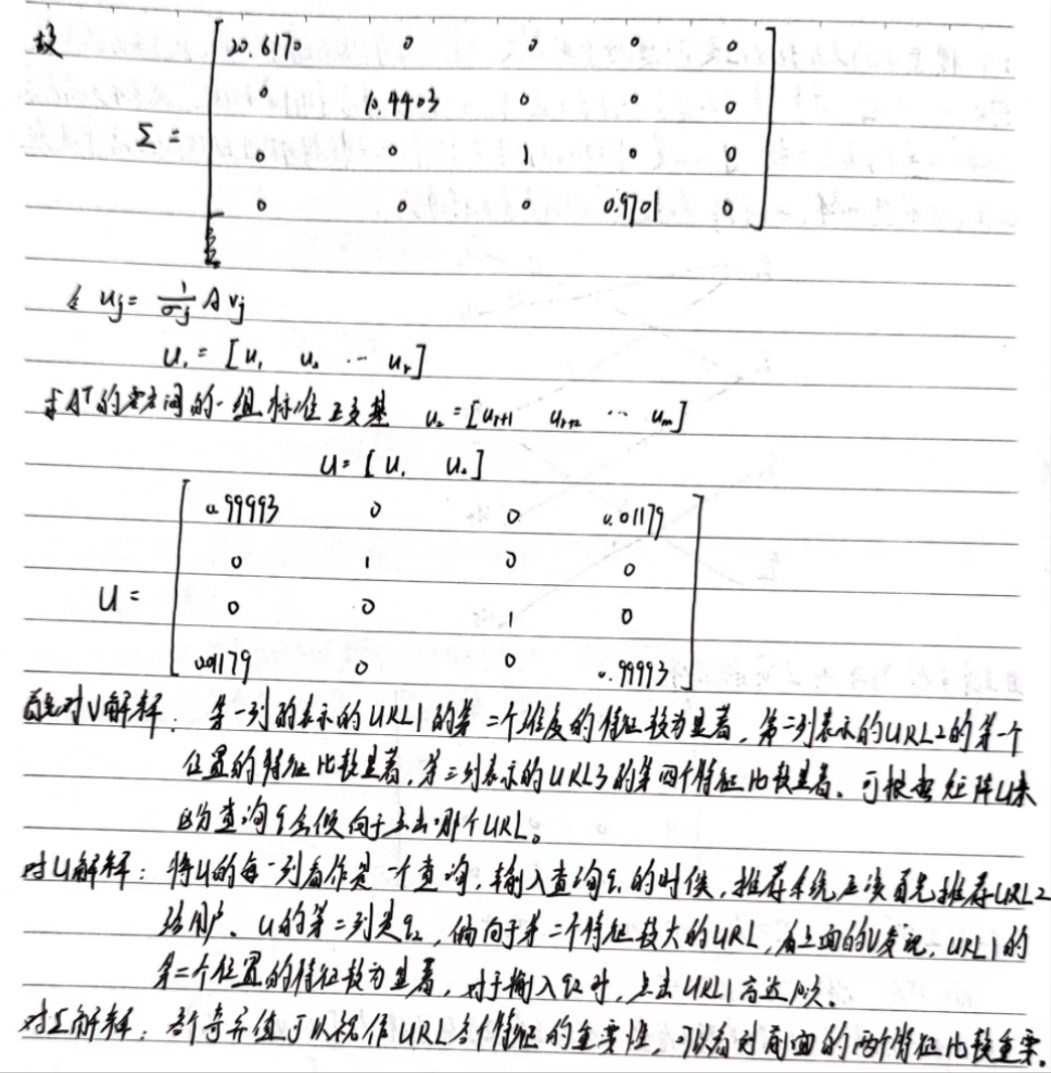 故
Σ = [ 20.6170 0 0 0 0
0 10.4403 0 0 0
0 0 1 0 0
0 0 0 0.9701 0 ]
令 uj = 1/σj A vj
U₁ = [u₁ u₂ … ur]
求Aᵀ的零空间的一组标准正交基 U₂ = [ur+1 ur+2 … um]
U = [U₁ U₂]
U = [ 0.99993 0 0 0.01179
0 1 0 0
0 0 1 0
0.01179 0 0 0.99993 ]
首先对V解释: 第一列的表示的URL1的第二个维度的特征较为显著,第二列表示的URL2的第一个
位置的特征比较显著,第三列表示的URL3的第四个特征比较显著。可根据矩阵U来
查询 会倾向于点击哪个URL。
对U解释: 将U的每一列看作是一个查询,输入查询q₁的时候,推荐系统应该首先推荐URL2
给用户。U的第二列是q₂,倾向于第二个特征较大的URL,看上面的V发现,URL1的
第二个位置的特征较为显著,对于输入q2时,点击URL1高达10次。
对Σ解释: 各个奇异值可以说作URL各个特征的重要性,可以看到前面的两个特征比较重要。